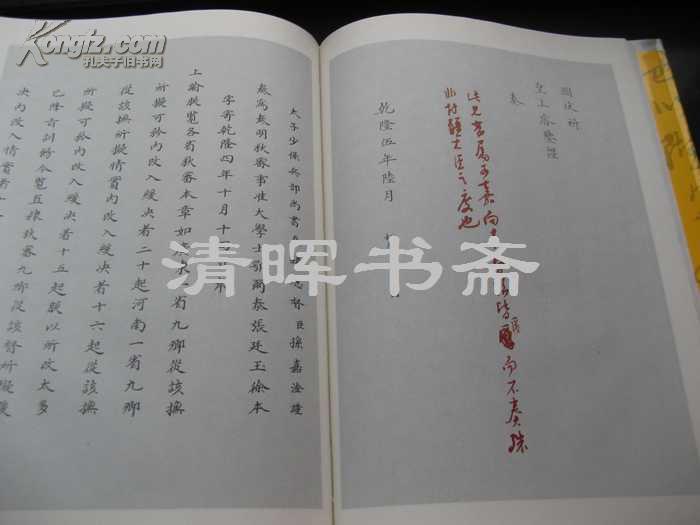 Kongfz.com
孔夫子旧书网
聞伏祈
皇上睿鑒謹
奏
此見甚屬可嘉向皆而不奏殊
非封疆大臣之度也
乾隆伍年陸月
太子少保兵部尚書督臣孫嘉淦謹
奏為奏明秋審事准大學士鄂爾泰張廷玉徐本
字寄乾隆四年十月十
上諭朕覽各省秋審本章如廣東一省九卿從該撫
所擬可矜內改入緩決者二十起河南一省九卿
從該撫所擬情實內改入緩決者十六起從該撫
所擬可矜內改入緩決者十五起朕以所改太多
已降旨訓飭今覽直隸秋審九卿從該督所擬緩
決內改入情實者
清晖书斋